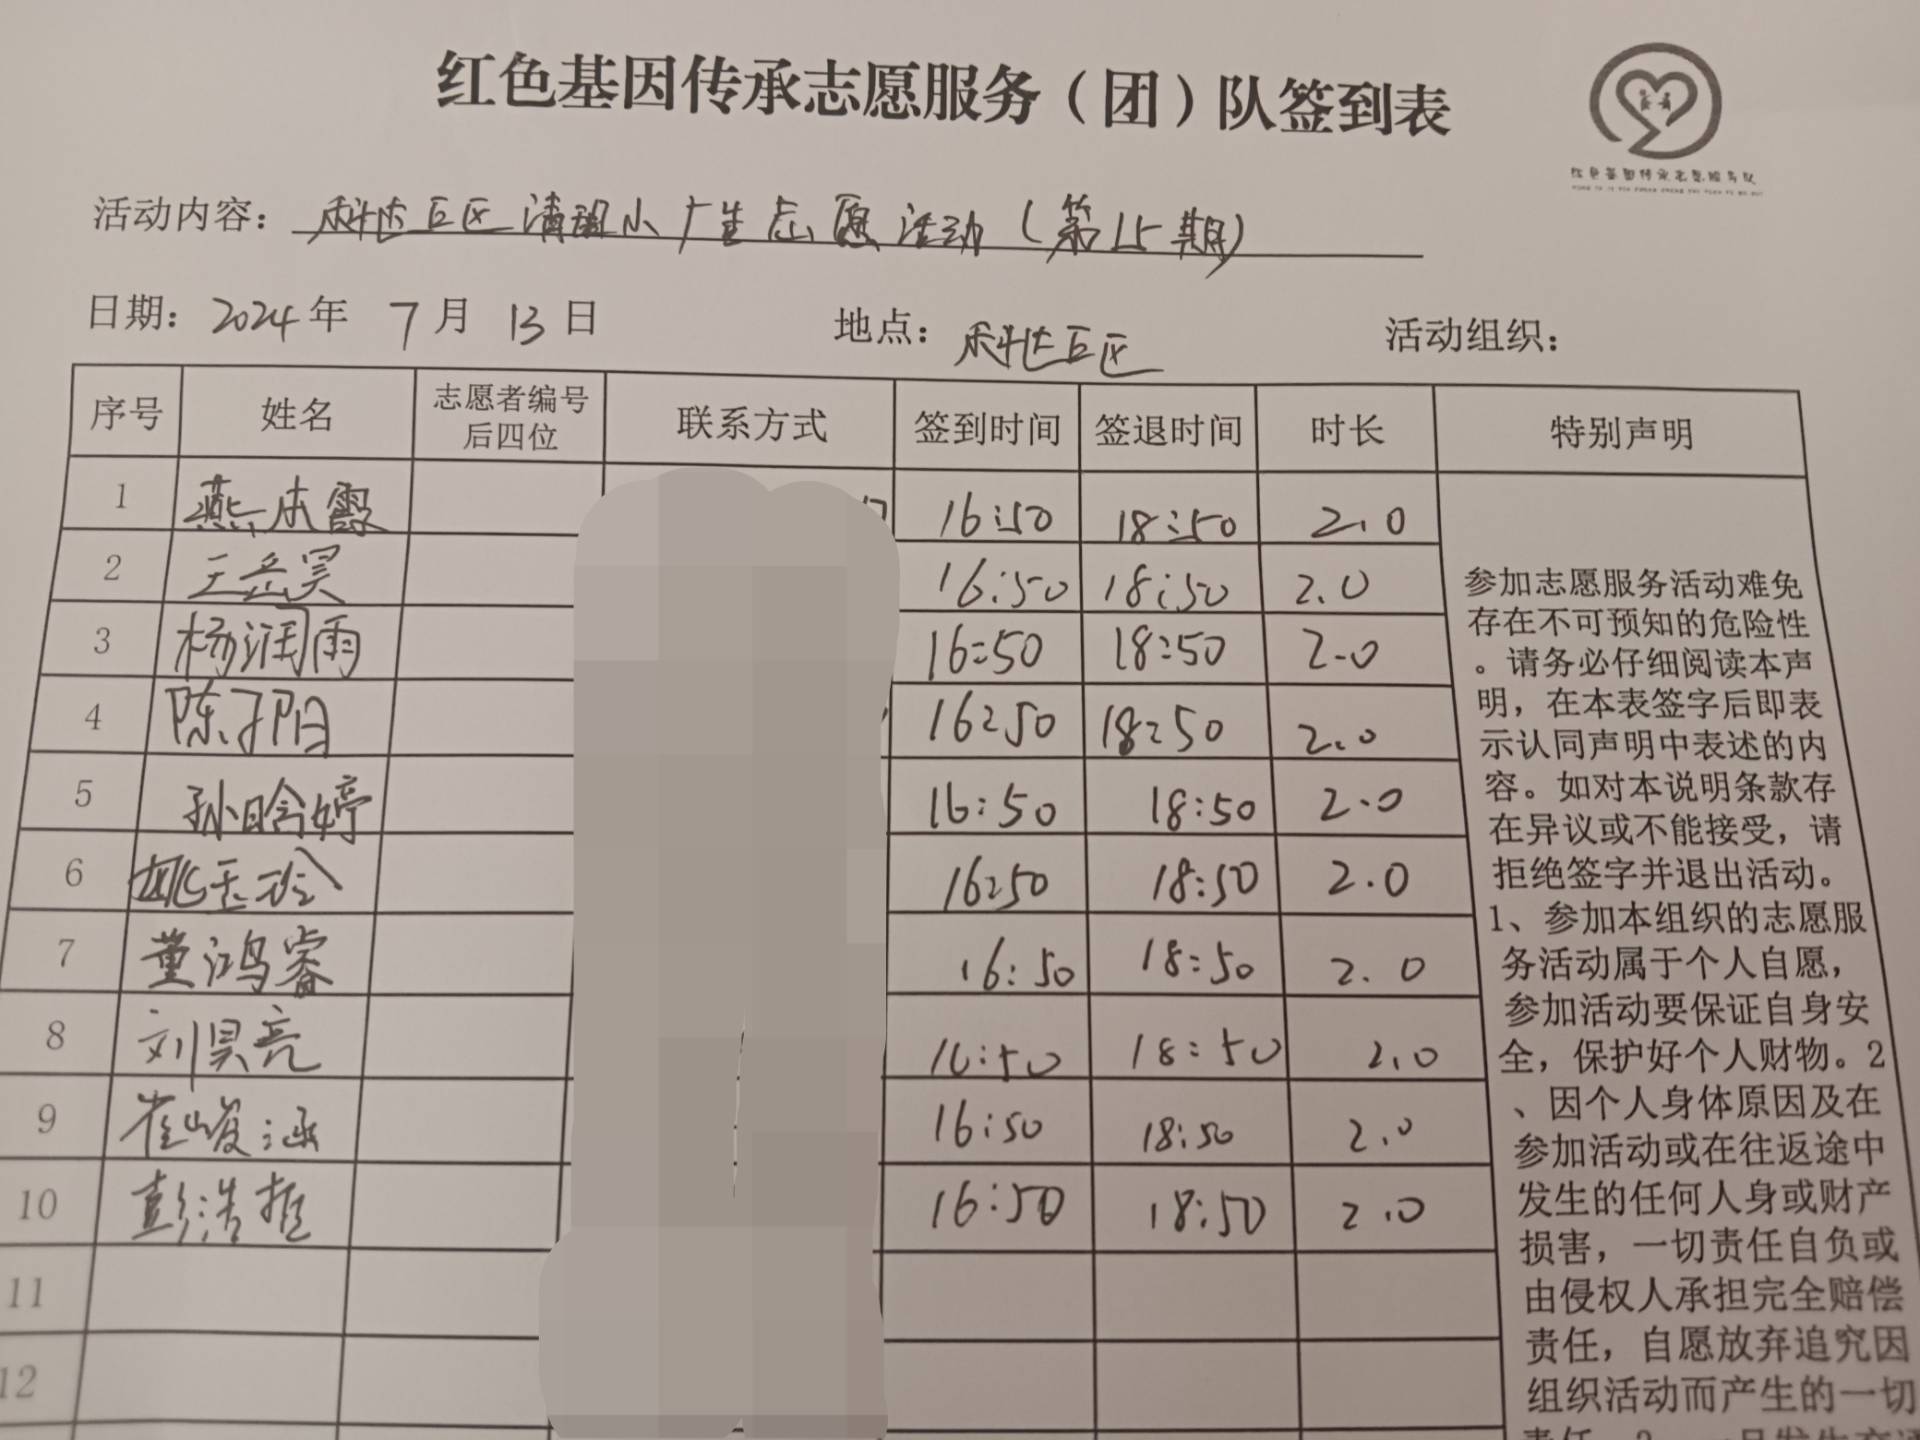 红色基因传承志愿服务（团）队签到表
红色基因传承志愿服务队
活动内容：科达巨区清理小广告志愿活动（第15期）
日期：2024年 7月 13日 地点：科达巨区 活动组织：
序号 姓名 志愿者编号后四位 联系方式 签到时间 签退时间 时长 特别声明
1 燕本霞 16:50 18:50 2.0
2 王岳昊 16:50 18:50 2.0
3 杨润雨 16:50 18:50 2.0
4 陈子阳 16:50 18:50 2.0
5 孙晗婷 16:50 18:50 2.0
6 姚玉玲 16:50 18:50 2.0
7 董鸿睿 16:50 18:50 2.0
8 刘昊亮 16:50 18:50 2.0
9 崔峻涵 16:50 18:50 2.0
10 彭浩 16:50 18:50 2.0
11
12
参加志愿服务活动难免
存在不可预知的危险性
。请务必仔细阅读本声
明，在本表签字后即表
示认同声明中表述的内
容。如对本说明条款存
在异议或不能接受，请
拒绝签字并退出活动。
1、参加本组织的志愿服
务活动属于个人自愿，
参加活动要保证自身安
全，保护好个人财物。2
、因个人身体原因及在
参加活动或在往返途中
发生的任何人身或财产
损害，一切责任自负或
由侵权人承担完全赔偿
责任，自愿放弃追究因
组织活动而产生的一切